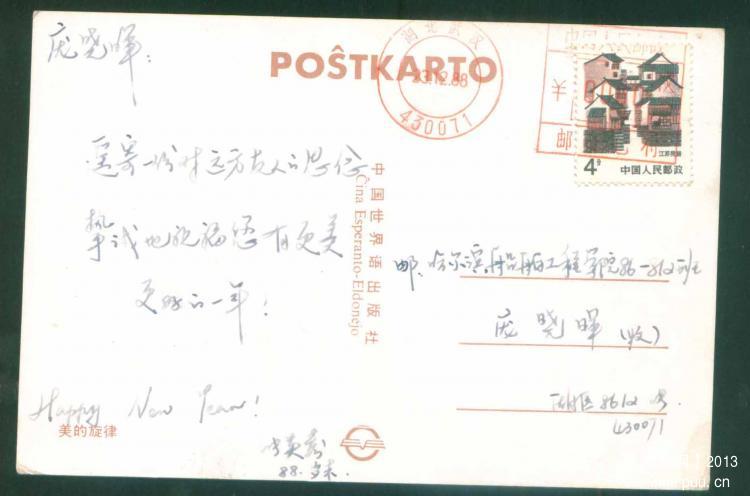 庞晓晖：
遥寄一份对远方友人的思念
挚诚地祝福您有更美
更好的一年！
Happy New Year!
美的旋律
88.岁末.
POŜTKARTO
中国世界语出版社
Ĉina Esperanto-Eldonejo
湖北武汉
23.12.88
430071
4分
江苏民居
中国人民邮政
邮：哈尔滨船舶工程学院86-812班
庞晓晖（收）
430071